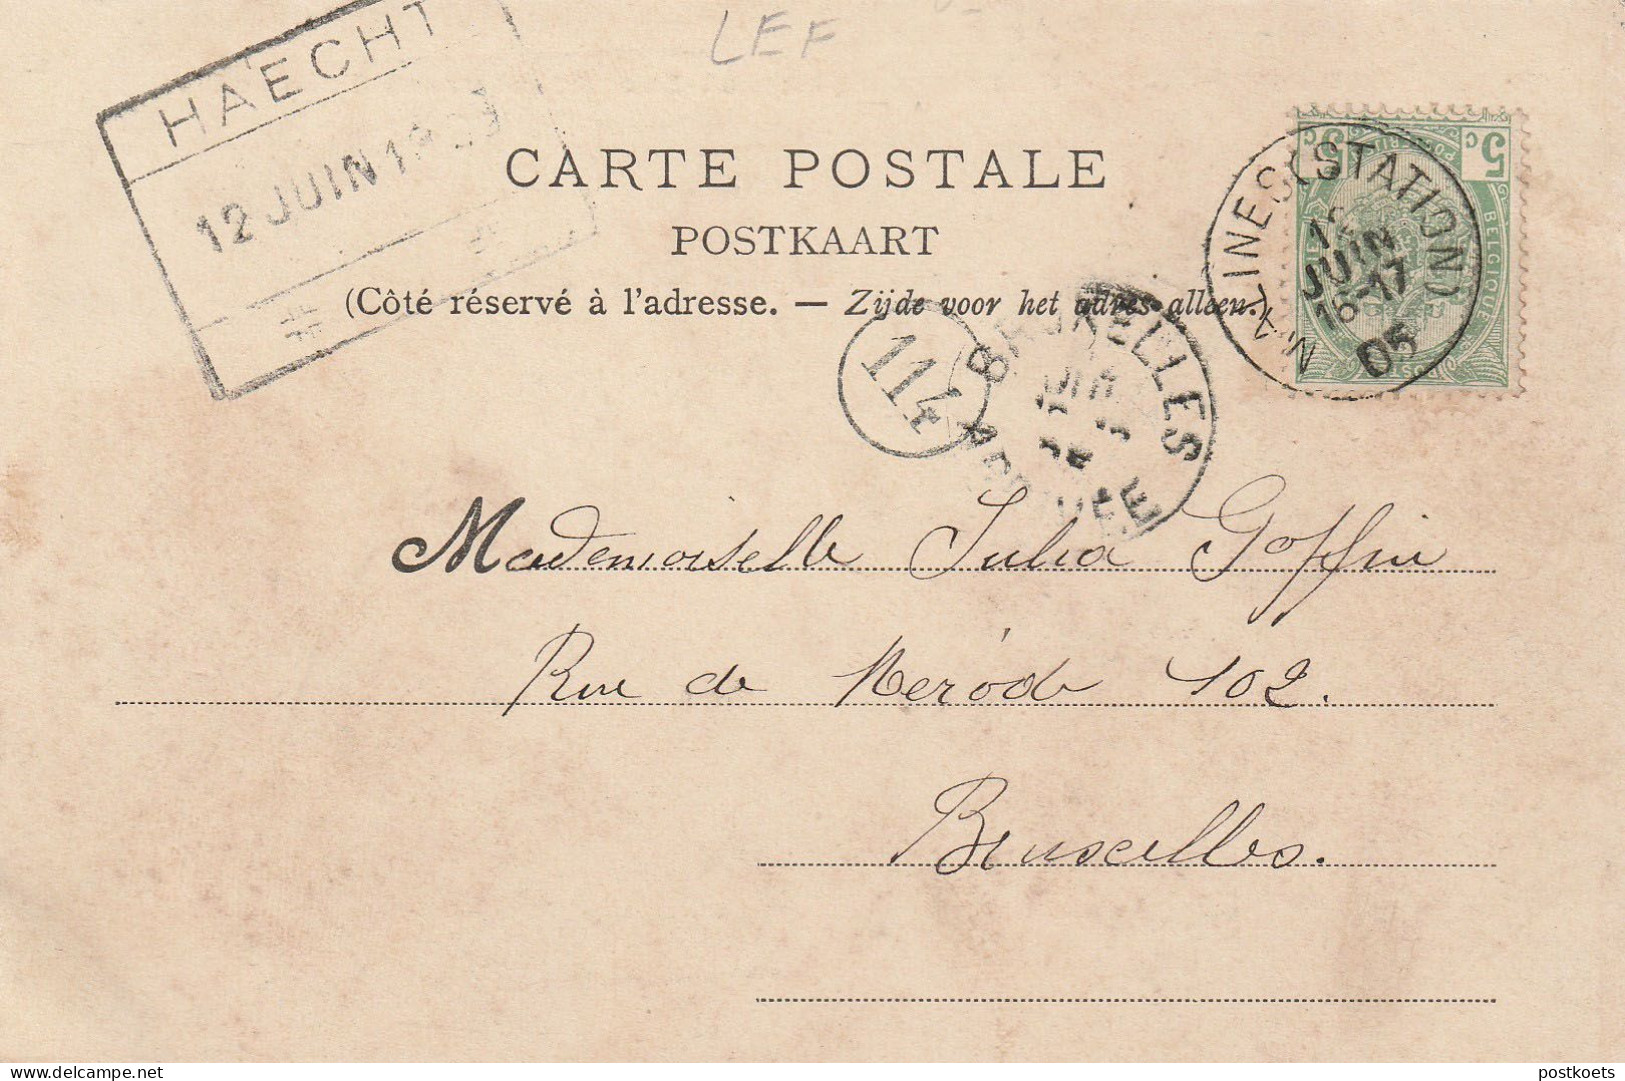 LEF
HAECHT
12 JUIN 1
CARTE POSTALE
POSTKAART
(Côté réservé à l'adresse. — Zijde voor het adres alleen.)
5c 5
BELGIQUE
MALINES (STATION)
JUIN
16-17
05
114
BRUXELLES
ARRIVEE
Mademoiselle Julia Goffin
Rue de Mérode 102.
Bruxelles.
Delcampe.net
postkoets